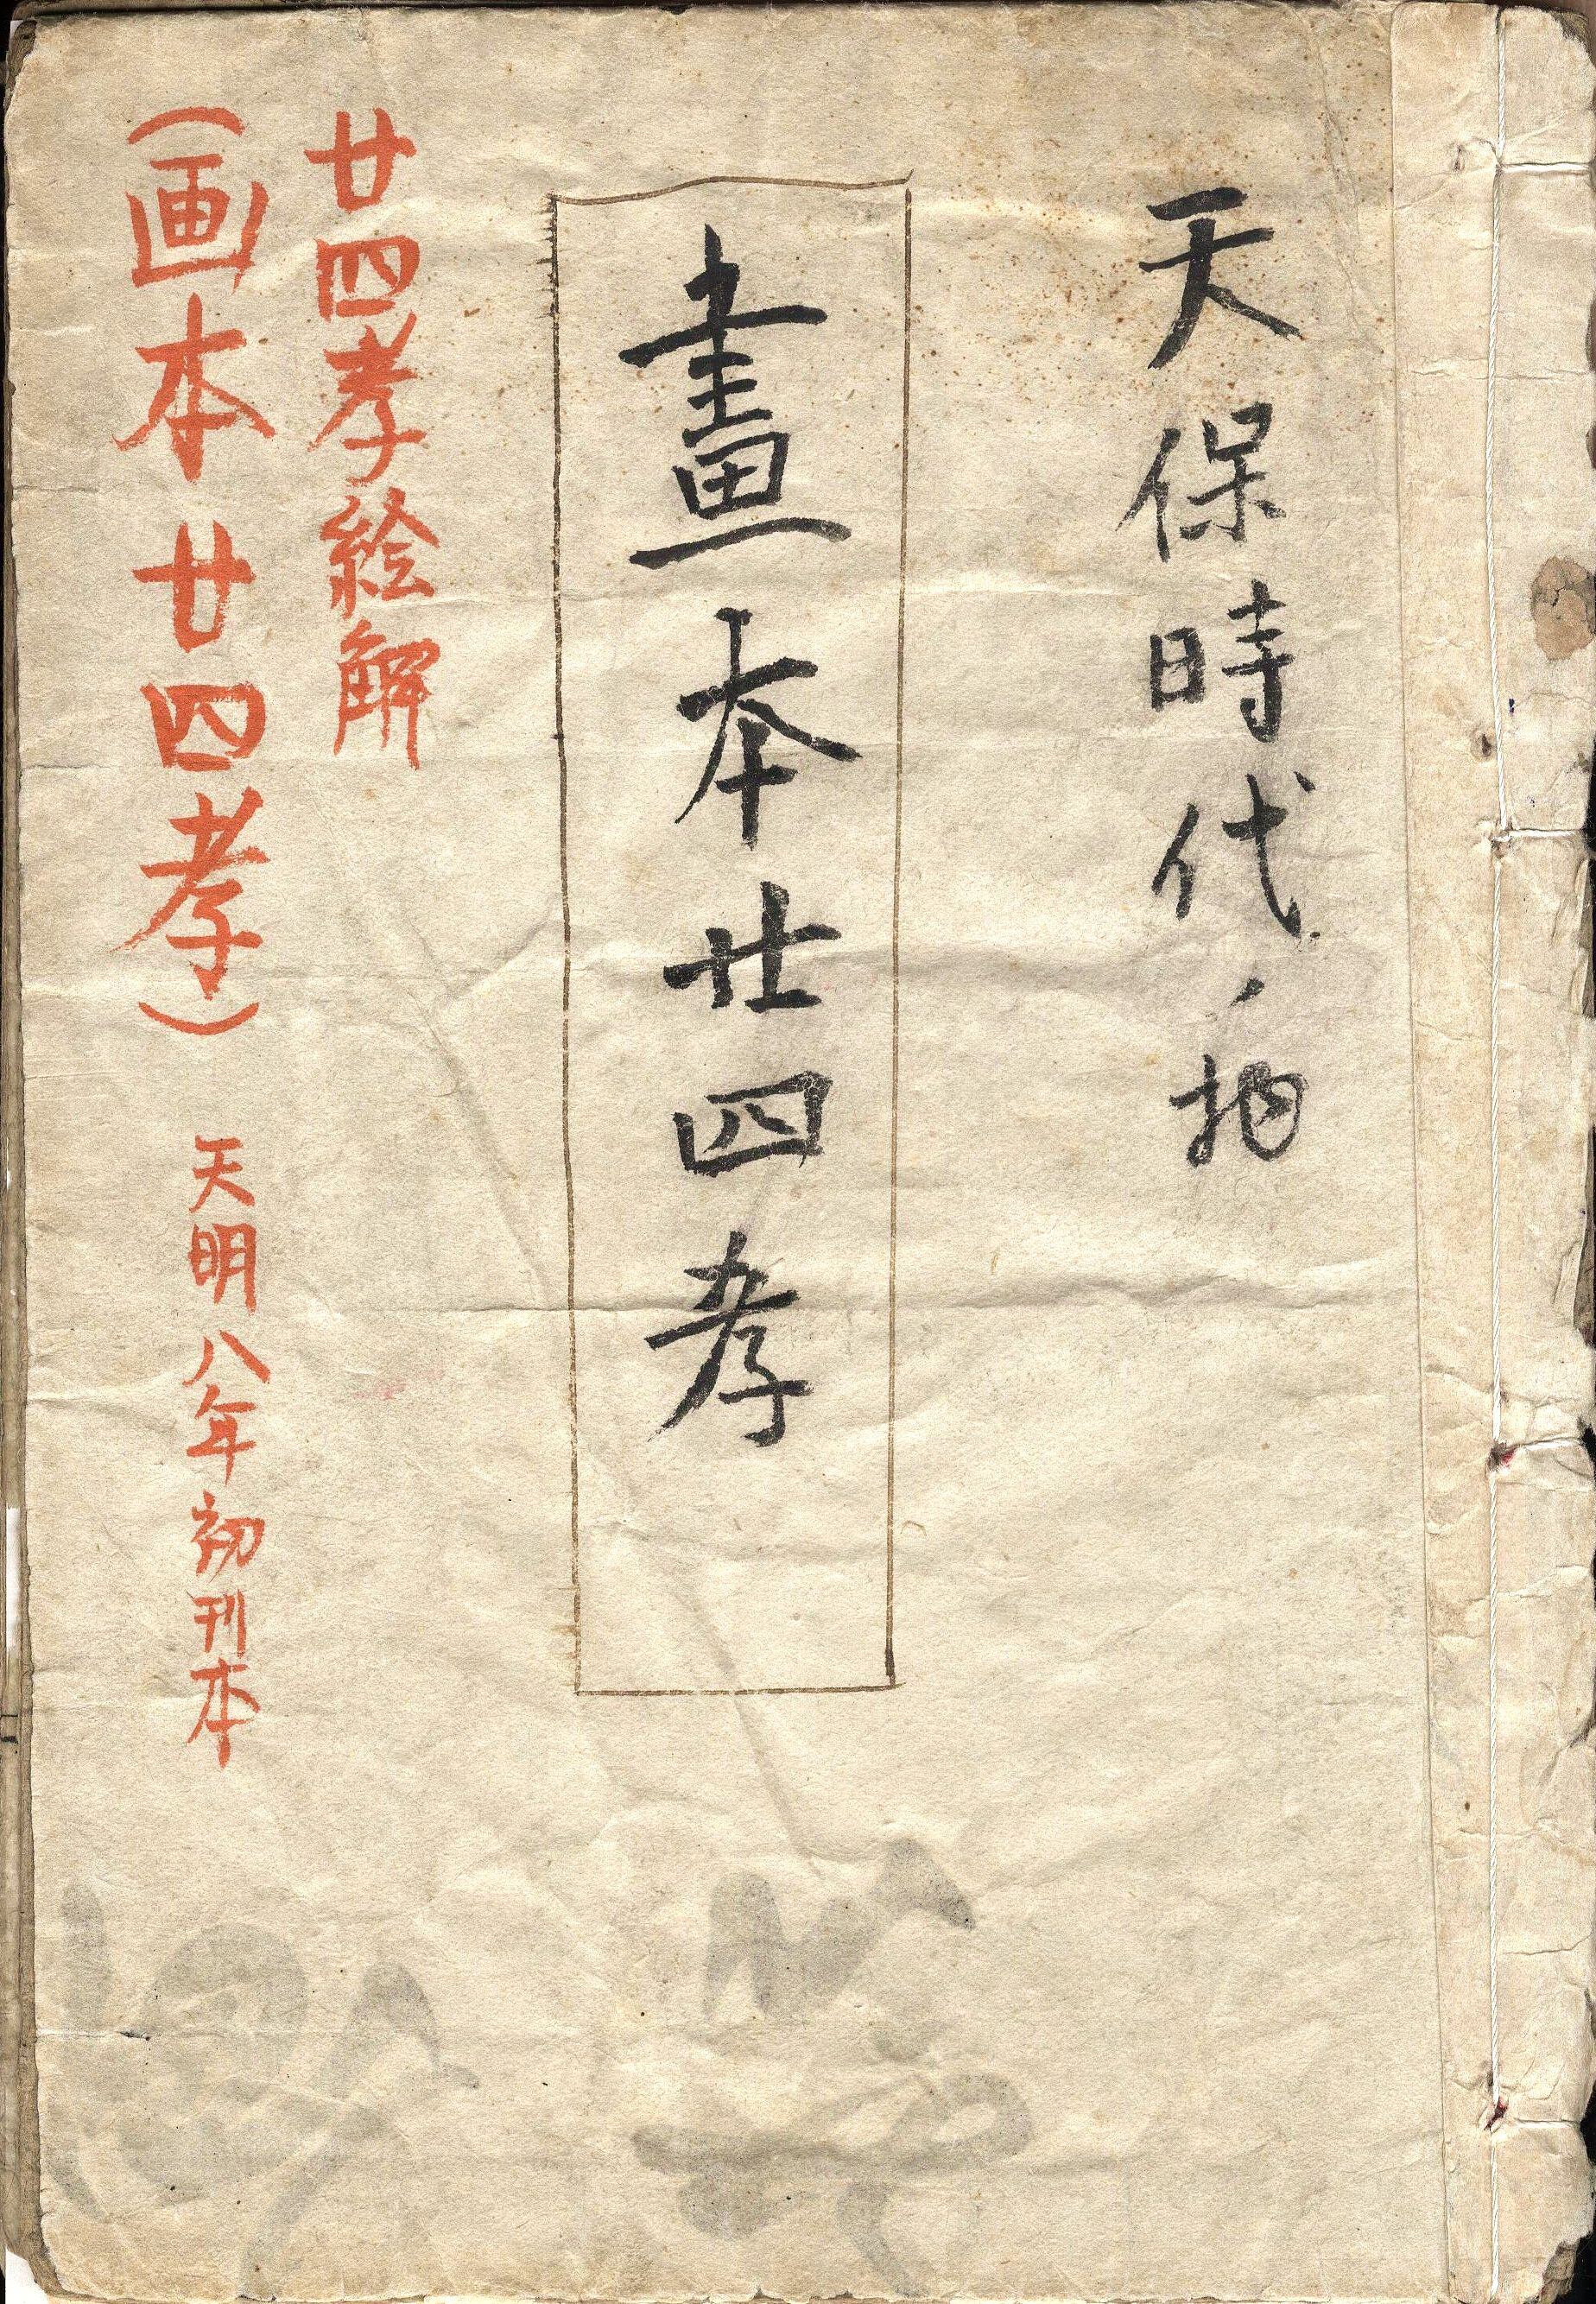 天保時代ノ物
畫本廿四孝
廿四孝絵解
（画本廿四孝）天明八年初刊本